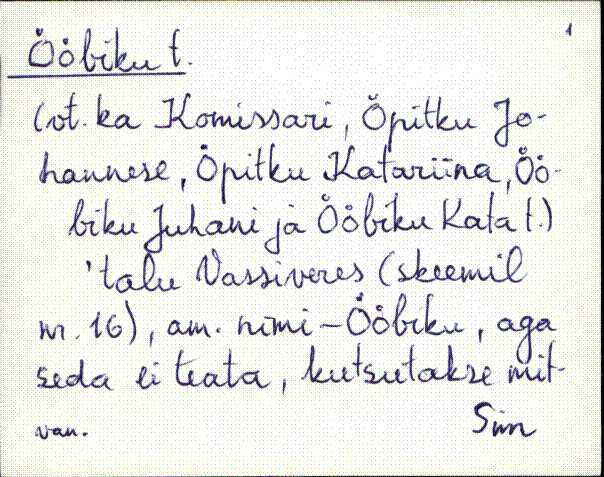 1
Ööbiku t.
(vt. ka Komissari, Öpitku Jo-
hannese, Öpitku Katariina, Öö-
biku Juhani ja Ööbiku Kata t.)
'talu Vassiveres (skeemil
nr. 16), am. nimi – Ööbiku, aga
seda ei teata, kutsutakse mit-
van. Siin